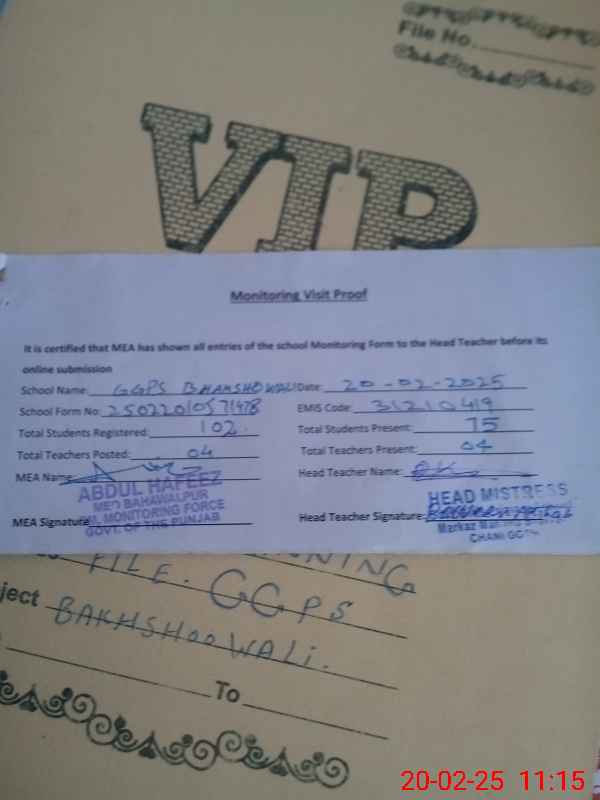 File No.
VIP
Monitoring Visit Proof
It is certified that MEA has shown all entries of the school Monitoring Form to the Head Teacher before its
online submission
School Name: GGPS BHAKSHOWALI Date: 20-02-2025
School Form No: EMIS Code: 31210419
Total Students Registered: 102 Total Students Present: 75
Total Teachers Posted: 04 Total Teachers Present: 04
MEA Name: Head Teacher Name:
ABDUL HAFEEZ HEAD MISTRESS
BAHAWALPUR
MEA Signature MONITORING FORCE Head Teacher Signature:
GOVT. OF THE PUNJAB Markaz
FILE. GGPS
ject BAKHSHOOWALi.
To
20-02-25 11:15